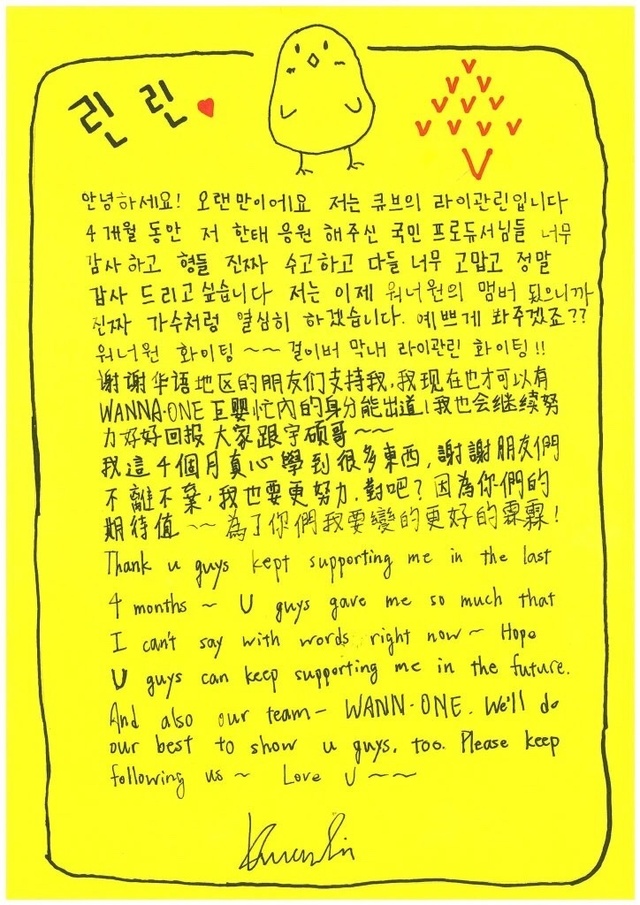 린 린
안녕하세요! 오랜만이에요 저는 큐브의 라이관린입니다
4개월 동안 저 한태 응원 해주신 국민 프로듀서님들 너무
감사하고 형들 진짜 수고하고 다들 너무 고맙고 정말
감사 드리고 싶습니다 저는 이제 워너원의 맴버 됬으니까
진짜 가수처럼 열심히 하겠습니다. 예쁘게 봐주겠죠??
워너원 화이팅 ~~ 걸이버 막내 라이관린 화이팅!!
谢谢华语地区的朋友们支持我,我现在也才可以有
WANNA·ONE 巨婴忙內的身分能出道!我也会继续努
力好好回报 大家跟宇硕哥~~
我這4個月真心學到很多東西,謝謝朋友們
不離不棄,我也要更努力,對吧?因為你們的
期待值 ~~ 為了你們我要變的更好的霖霖!
Thank u guys kept supporting me in the last
4 months ~ U guys gave me so much that
I can't say with words right now ~ Hope
U guys can keep supporting me in the future.
And also our team- WANN·ONE. We'll do
our best to show u guys, too. Please keep
following us ~ Love U ~~
Kuanlin